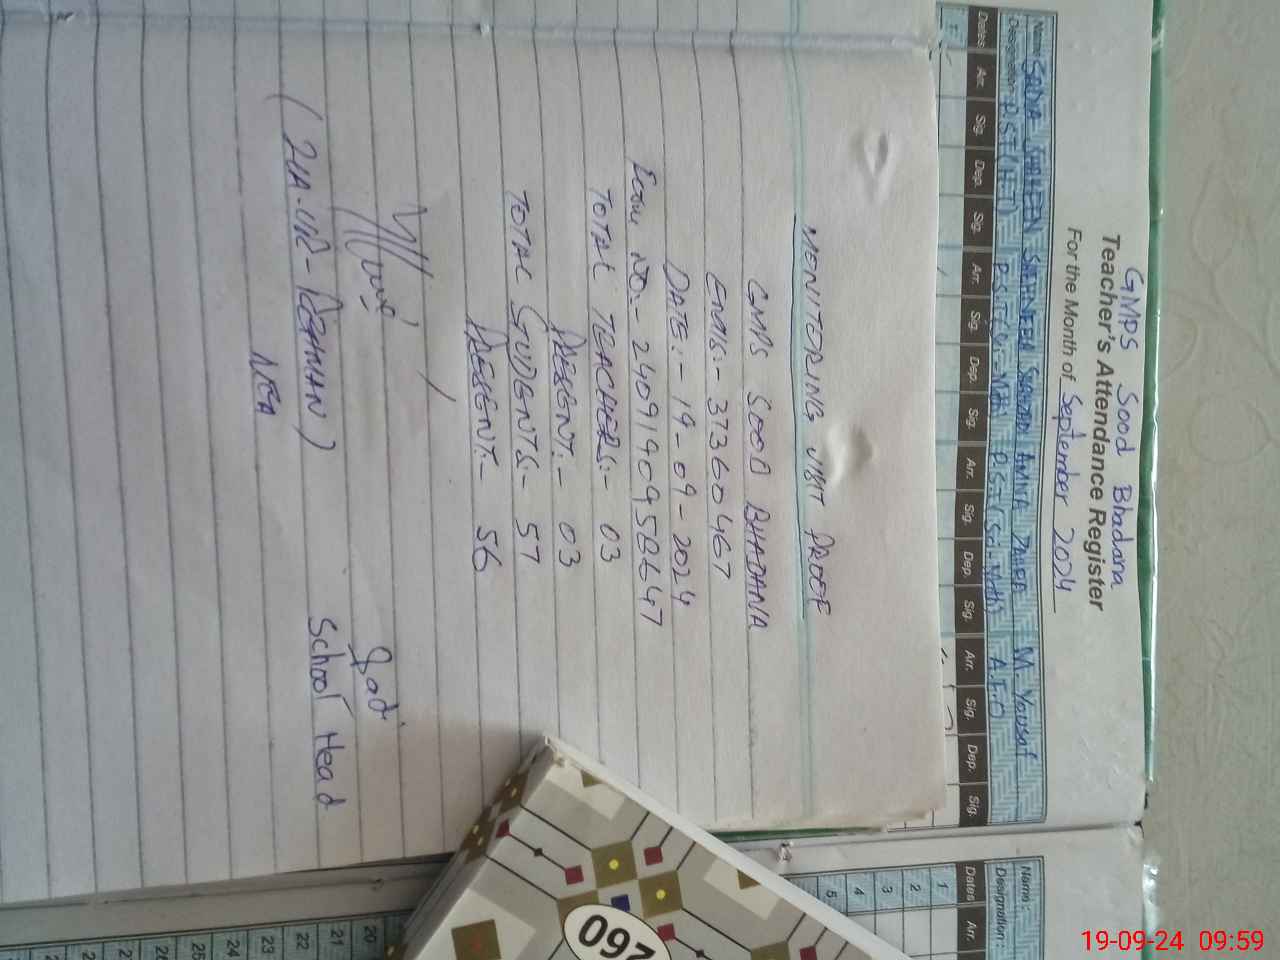 GMPS Sood Bhadana
Teacher's Attendance Register
For the Month of September 2024
Name SADIA SHAHEEN SHAHEEN SHAHAD AMNA M. Yousaf
Designation P.ST (H.T) P.S.T (Sci-Math) P.S.T (Sci-Math) A.E.O
Dates Arr. Sig. Dep. Sig. Arr. Sig. Dep. Sig. Arr. Sig. Dep. Sig. Arr. Sig. Dep. Sig.
MONITORING VISIT PROOF
GMPS SOOD BHADANA
EMIS:- 37360467
DATE:- 19-09-2024
Form NO:- 24091909586647
TOTAL TEACHERS:- 03
PRESENT:- 03
TOTAL STUDENTS:- 57
PRESENT:- 56
Sad
School Head
(ZIA-UR-REHMAN)
MEA
Name :
Designation :
Dates Arr.
1
2
3
4
5
20
21
22
23
24
25
26
27
097
19-09-24 09:59